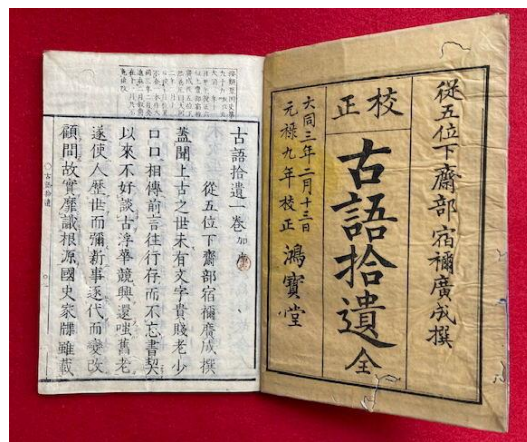 從五位下齋部宿禰廣成撰
校正
古語拾遺 全
大同三年二月十三日
元禄九年校正 鴻寶堂
古語拾遺一卷 加序
從五位下齋部宿禰廣成撰
蓋聞上古之世未有文字貴賤老少
口口相傳前言往行存而不忘書契
以來不好談古浮華競興還嗤舊老
遂使人歷世而彌新事逐代而變改
顧問故實靡識根源國史家牒雖載
古語拾遺